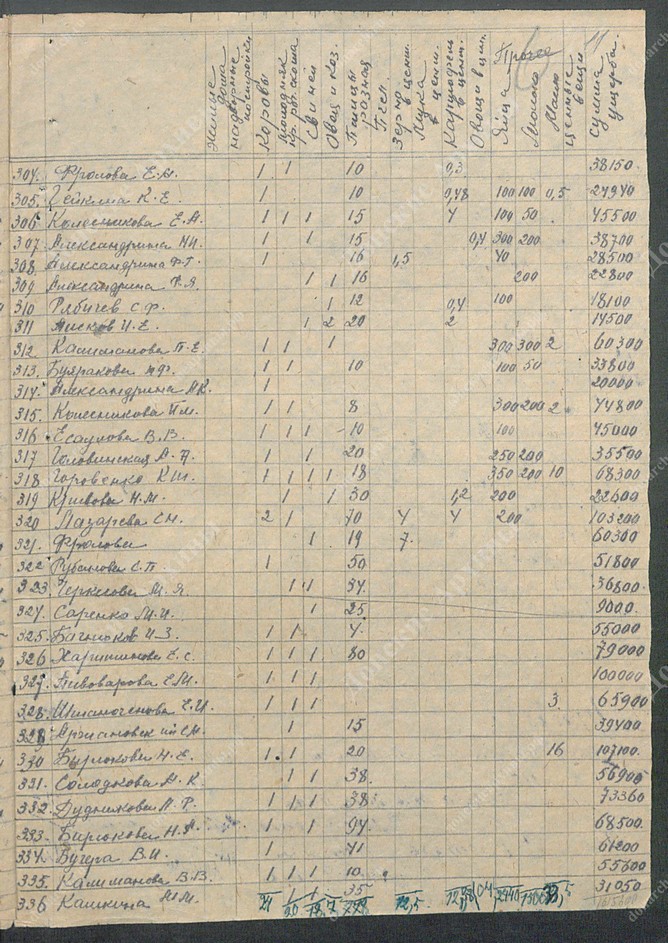 11
Жилые дома
надворные постройки
Коровы
молодняк кр. рог. скота
Свиней
Овец и коз.
Птицы разная
Пчел.
Зерно в центн.
Мука в центн.
Картофель в центн.
Овощи в цт.
Прочее
Яйца
Молоко
Масло
ценные вещи
Сумма ущерба.
304. Фролова Е.И. 1 1 10 0,3 38150.
305. Чейкина К.Е. 1 10 0,48 100 100 0,5 24940
306 Колесникова Е.А. 1 1 1 15 4 100 50 45500
307 Александрина Н.И. 1 1 15 0,4 300 200 38700
308 Александрина Ф.Г. 1 16 1,5 40 28500
309 Александрина 1 1 16 200 22800
310 Рябичев С.Ф. 1 12 0,4 100 18100
311 Лисков И.Е. 1 2 20 2 14500
312 Калиманова П.Е. 1 1 1 300 300 2 60300
313. Буракова 1 1 10 100 50 33800
314. Александрина А.К. 1 20000
315. Колесникова П.М. 1 1 8 300 200 2 44800
316 Есаулова В.В. 1 1 1 10 100 45000
317 Головинская А. 1 1 20 250 200 35500
318 Горовенко К.Ш. 1 1 1 1 18 350 200 10 68300
319 Кривова Н.М. 1 1 30 1,2 200 22600
320 Лазарева С.Н. 2 1 70 4 4 200 103200
321. Фролова 1 19 7. 60300
322 Рубанова С.П. 1 50 51800
323. Черкесова М.Я. 1 1 34. 36800.
324. Саренко М.И. 1 25 9000.
325. Багнюков И.З. 1 1 4. 55000
326 Харитонова Е.С. 1 1 1 80 79000
327. Пивоварова Е.М. 1 1 1 100000
328. Е.И. 1 1 1 3 65900
329. С.М. 1 15 39400
330 Бирюкова Н.Е. 1 1 20 16 107100.
331. Солодкова А.К 1 1 38. 56900
332 Дудникова А.Р. 1 1 1 38. 73360
333. Бирюкова Н.А. 1 1 94. 68500.
334. Бугера В.И. 1 41 61200
335. Калиманова В.В. 1 1 1 10. 55600
336 Калкина М.М. 1 1 35 31050
21 20 18 7 12,5.